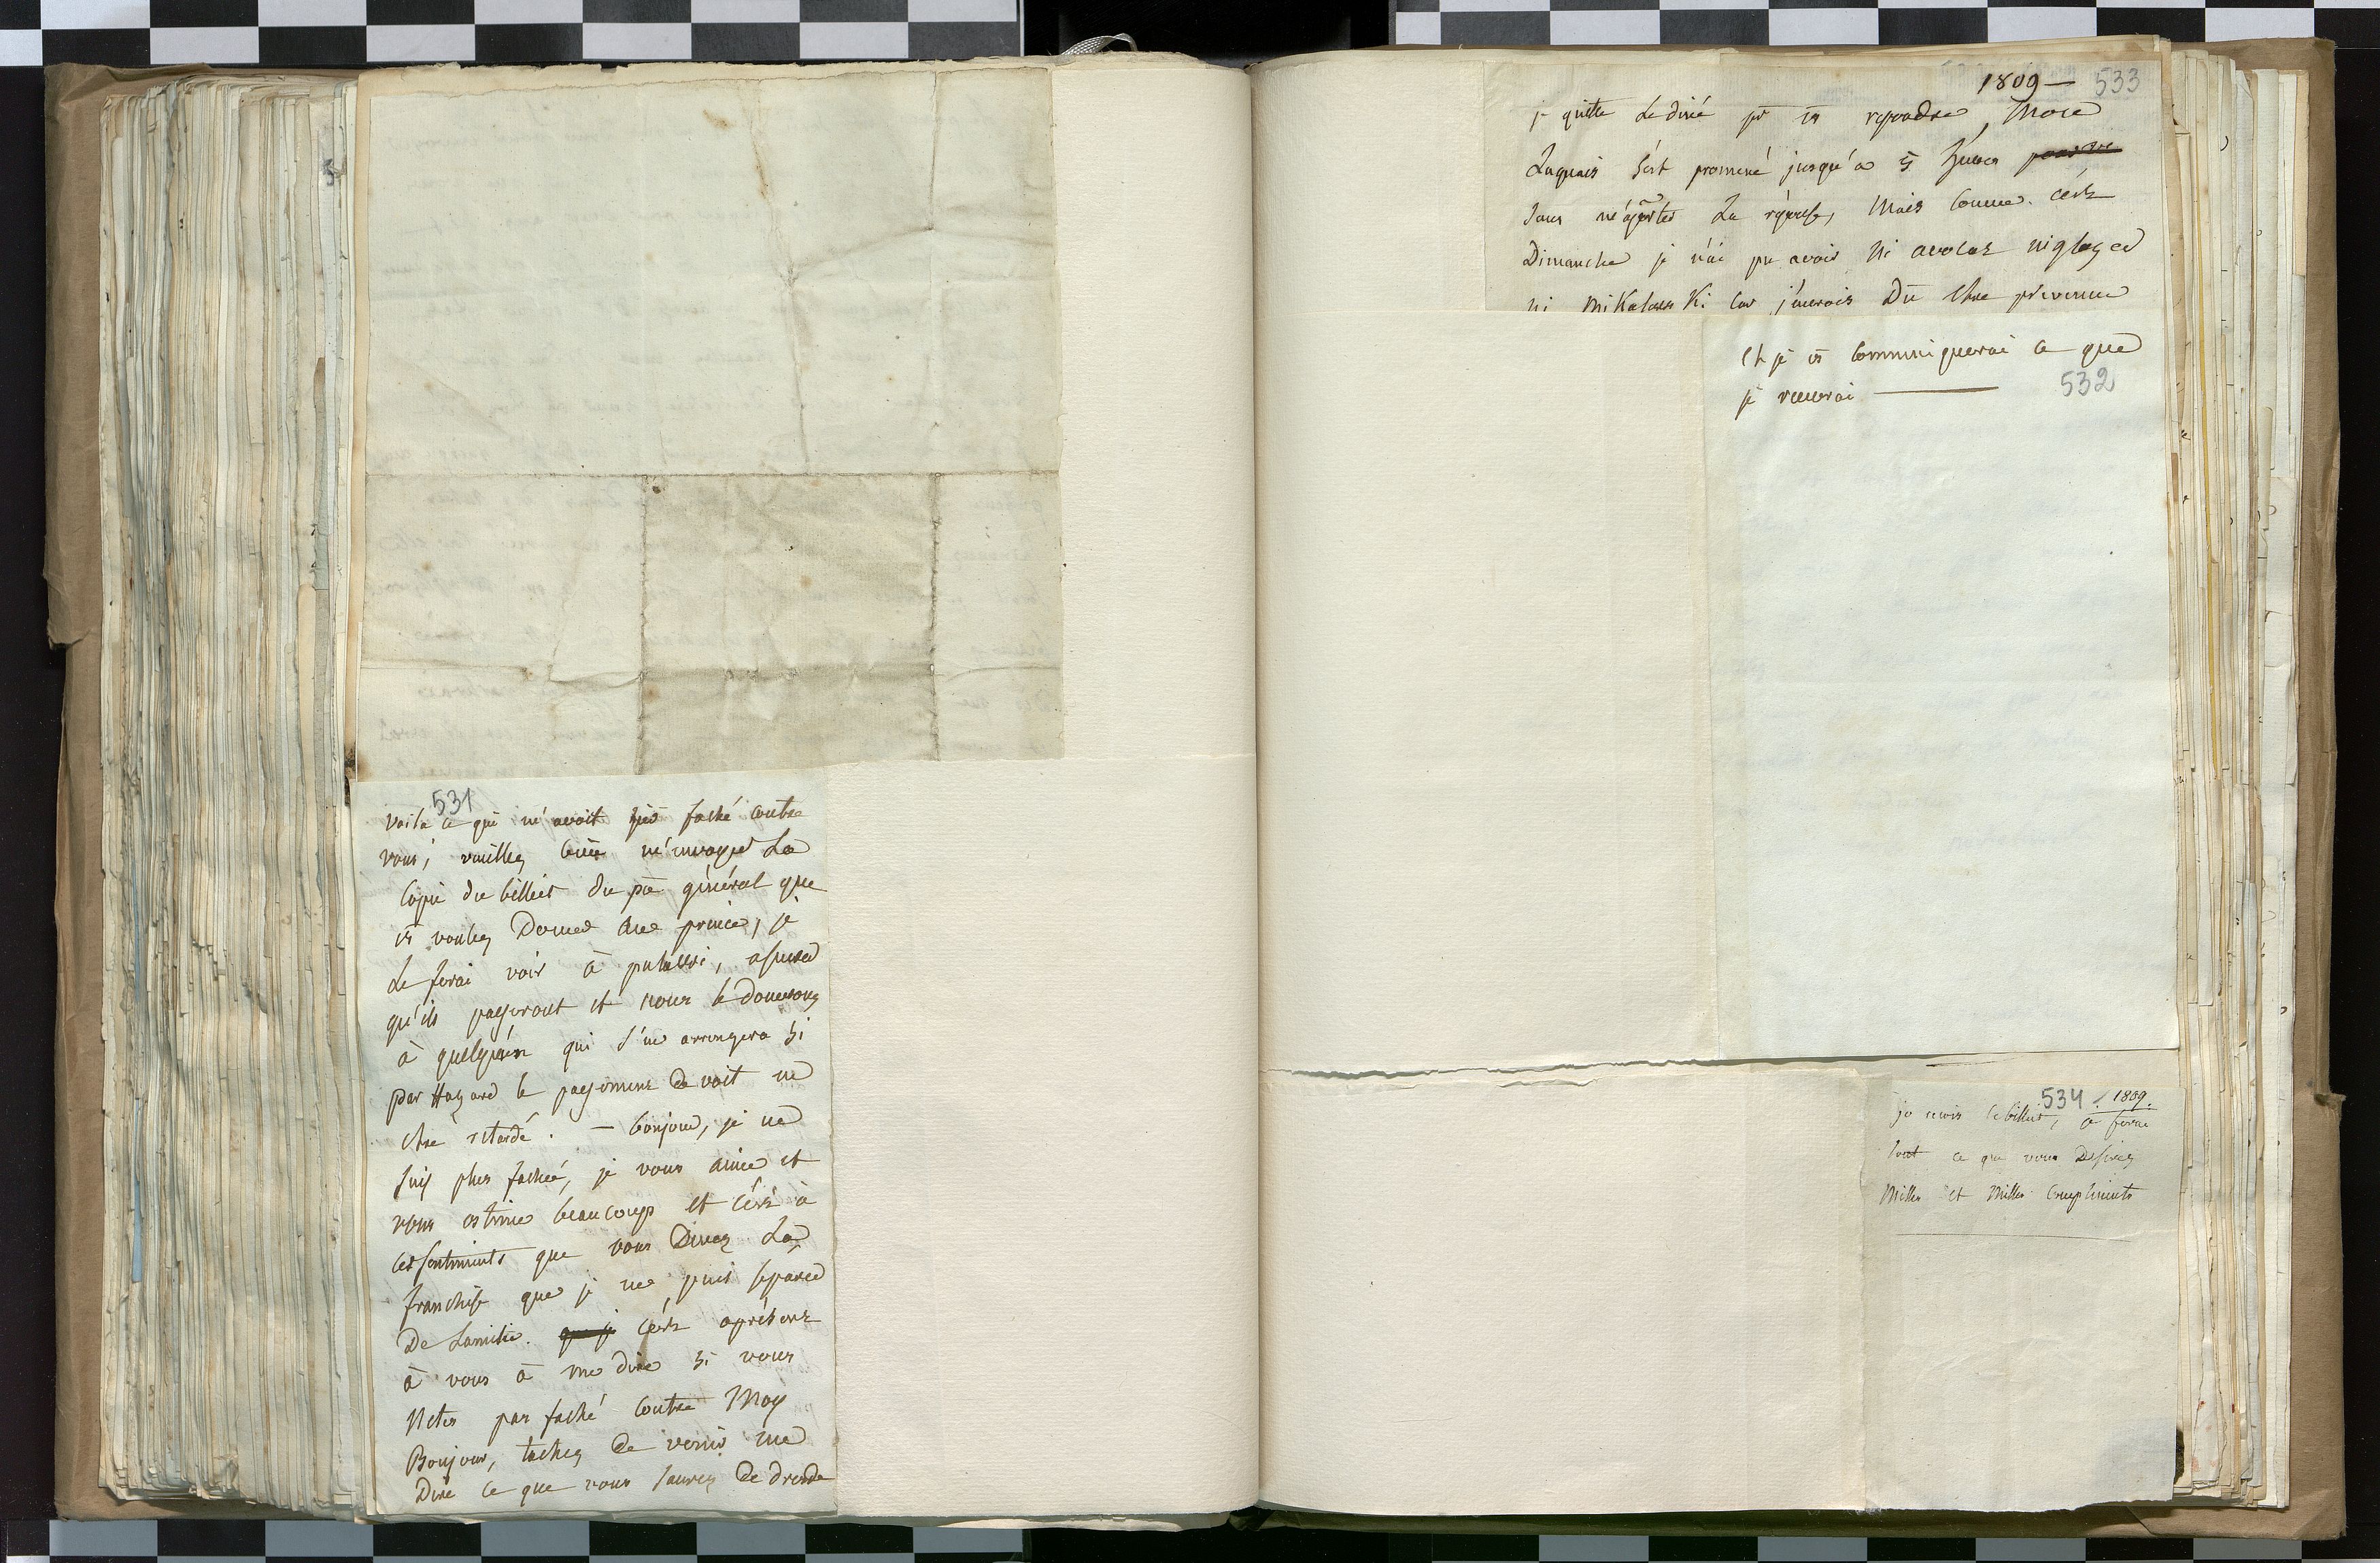 531
voila ce qui m'avoit faché contre
vous; veuillez bien m'envoyer La
Copie du billiet du pce général que
vs voulez Donner au prince, je
Le ferai voir à , assurer
qu'ils payeront et nous le donnerons
à quelqu'un qui s'en arrengera si
par Hazard le payement devoit en
etre retardé. — bonjour, je ne
suis plus fachée, je vous aime et
vous estime beaucoup et c'est à
ces sentiments que vous Devez La
franchise que je ne puis séparer
De Lamitié. que je c'est aprésent
à vous à me dire si vous
Netes pas faché contre Moy
Bonjour, tachez de venir me
Dire ce que vous saurez de dresde
1809 — 533
je quitte Le diné pr vs repondre, Mon
Laquais s'est promené jusqu'a 5 heures
sans m'aporter La réponse, Mais comme c'est
Dimanche je n'ai pu avoir Ni avocat ni
ni car j'aurois Dû etre prevenue
Et je vs communiquerai ce que
je recevrai — 532
534 1809.
je recois le billiet, et ferai
tout ce que vous Desirez
Milles et Milles Compliments